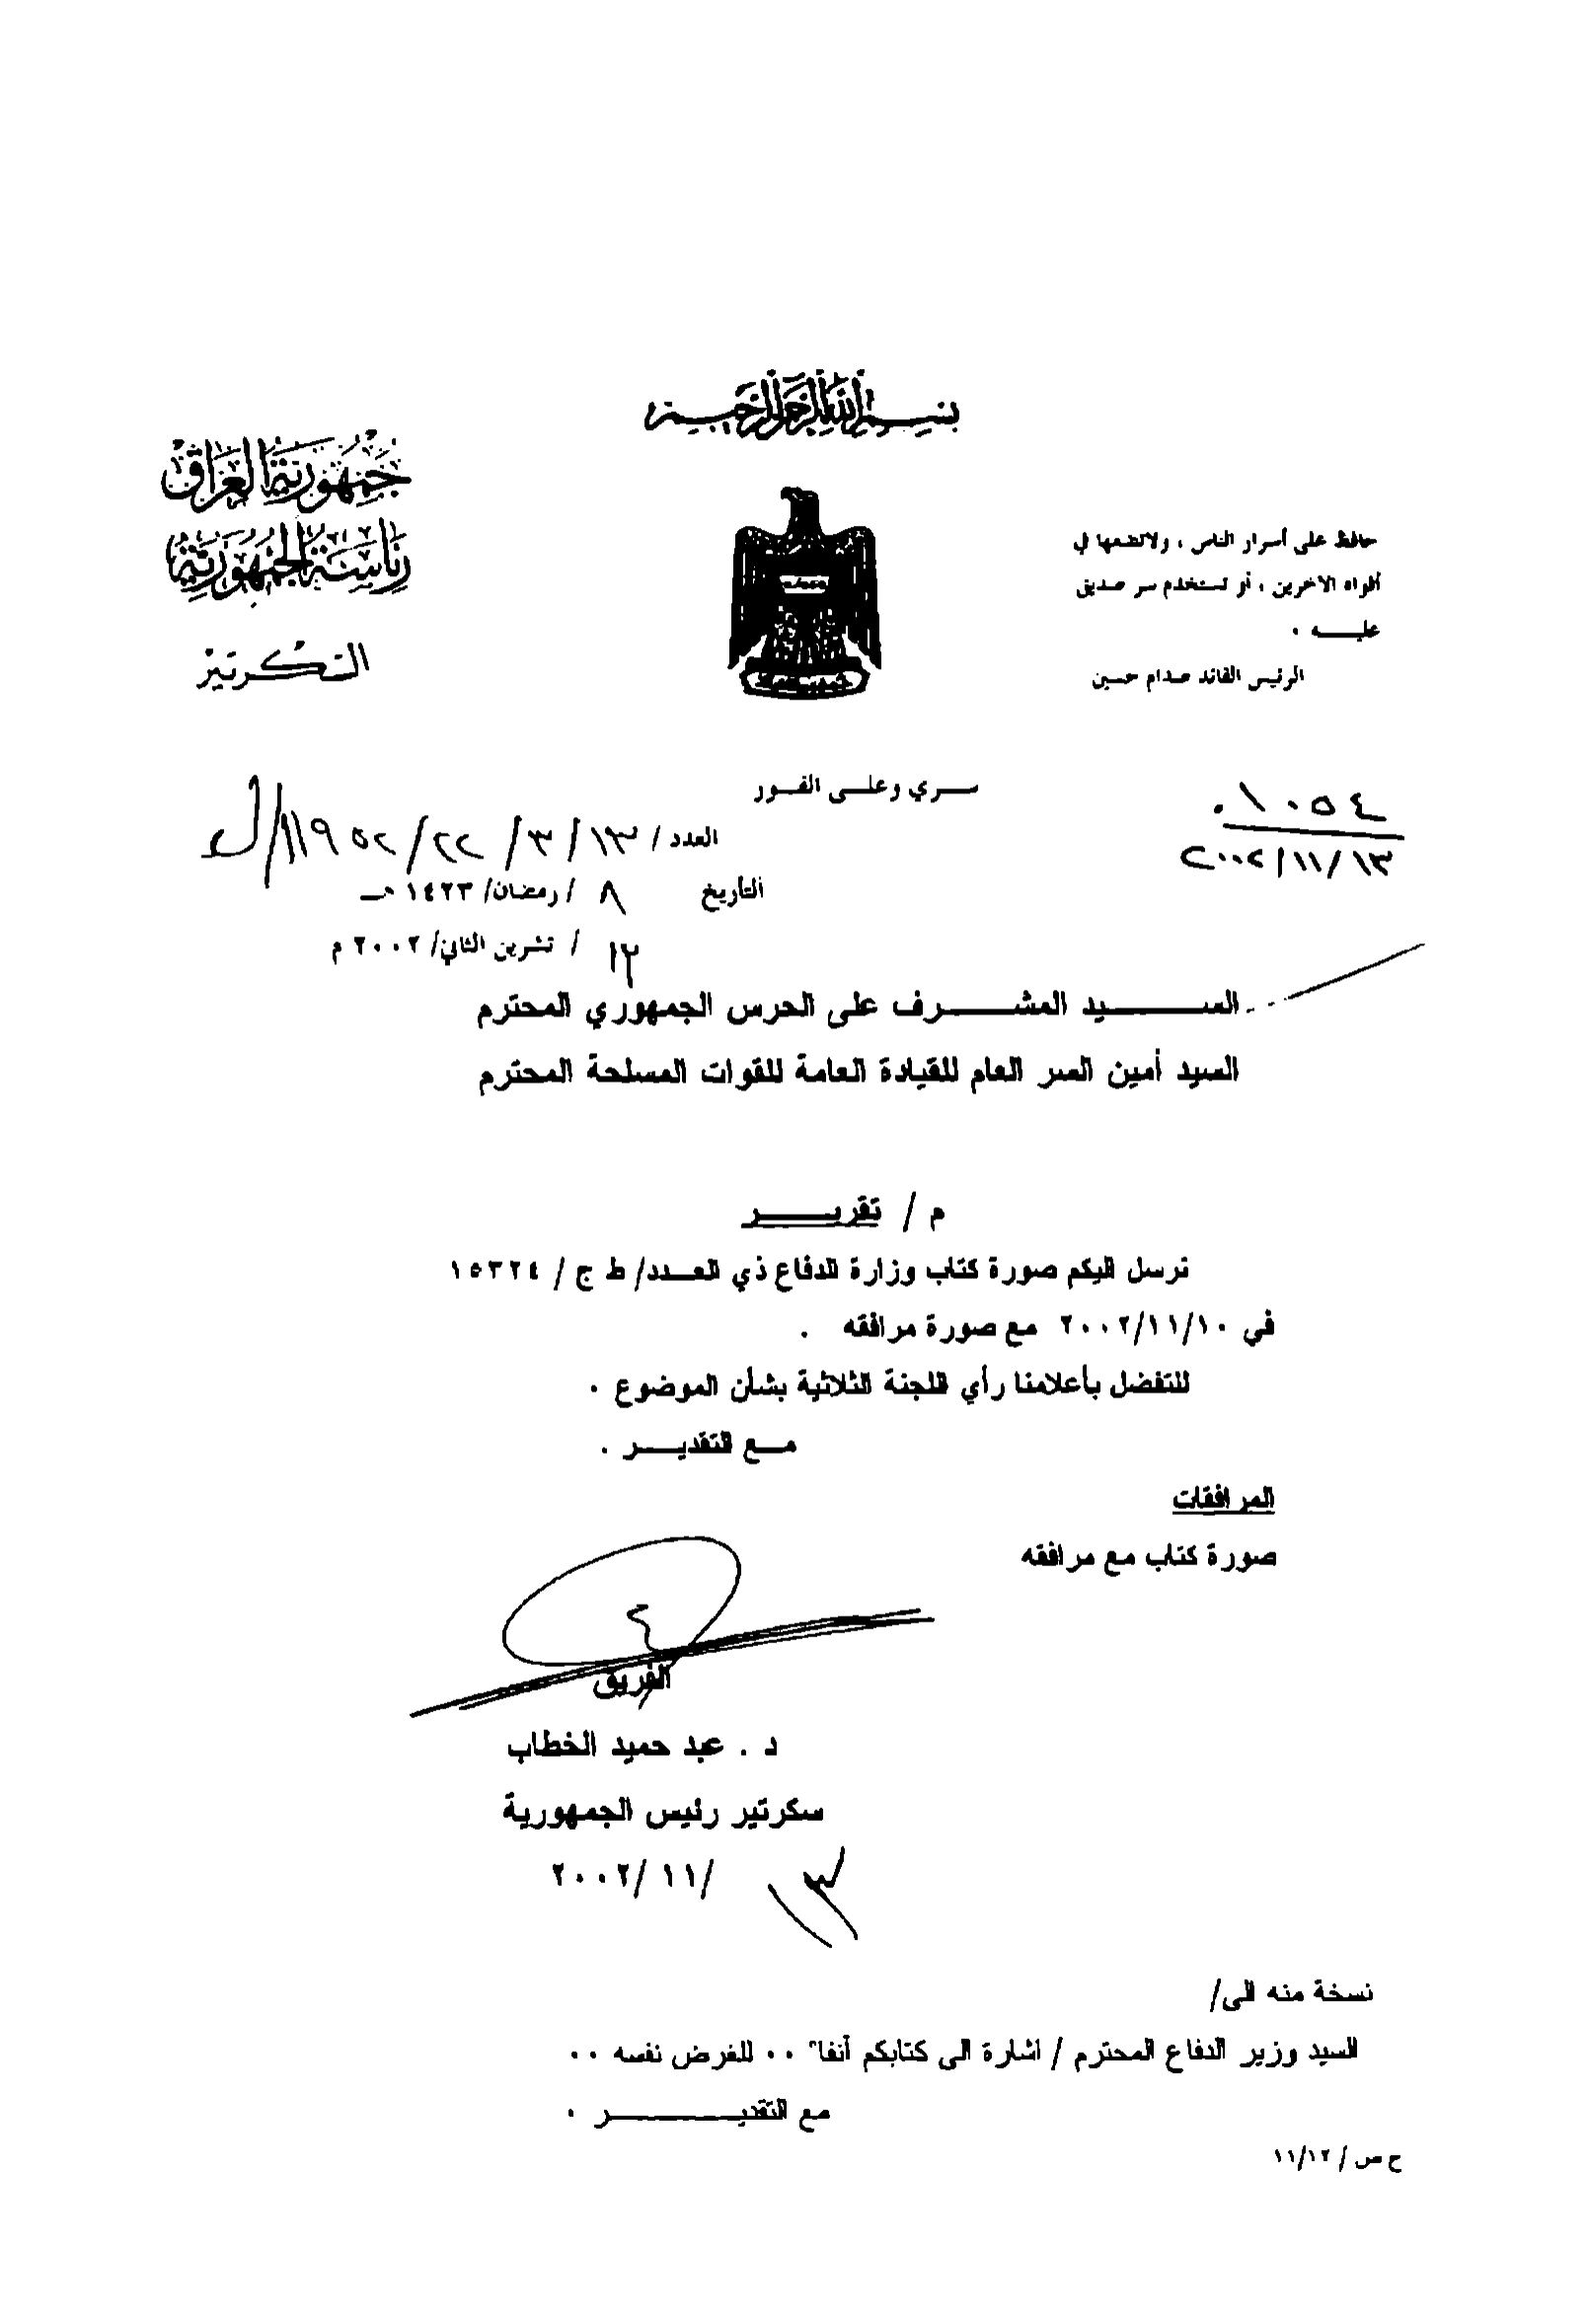 بسم الله الرحمن الرحيم
جمهورية العراق
رئاسة الجمهورية
السكرتير
حافظ على أسرار الناس ، ولاتضعها في
أفواه الاخرين ، أو تستخدم سر صديق
عليـــه ٠
الرئيس القائد صدام حسين
ســري وعلــى الفــور
١٠٥٤
٢٠٠٢/١١/١٣
العدد / ١٣/ ٣/ ٢٢/
التأريخ ٨ / رمضان/ ١٤٢٣ هـ
١٢ / تشرين الثاني/ ٢٠٠٢ م
الســـــيد المشـــــرف على الحرس الجمهوري المحترم
السيد أمين السر العام للقيادة العامة للقوات المسلحة المحترم
م / تقريـــــر
نرسل اليكم صورة كتاب وزارة الدفاع ذي العــدد/ ط ج / ١٥٣٢٤
في ٢٠٠٢/١١/١٠ مع صورة مرافقه .
للتفضل بأعلامنا رأي اللجنة الثلاثية بشأن الموضوع ٠
مــع التقديــــر .
المرافقات
صورة كتاب مع مرافقه
الفريق
د . عبد حميد الخطاب
سكرتير رئيس الجمهورية
١٣ /١١ /٢٠٠٢
نسخة منه الى/
السيد وزير الدفاع المحترم / اشارة الى كتابكم آنفا" ٠٠ للغرض نفسه ٠٠
مع التقديـــــــــر ٠
ح ص / ١١/١٢